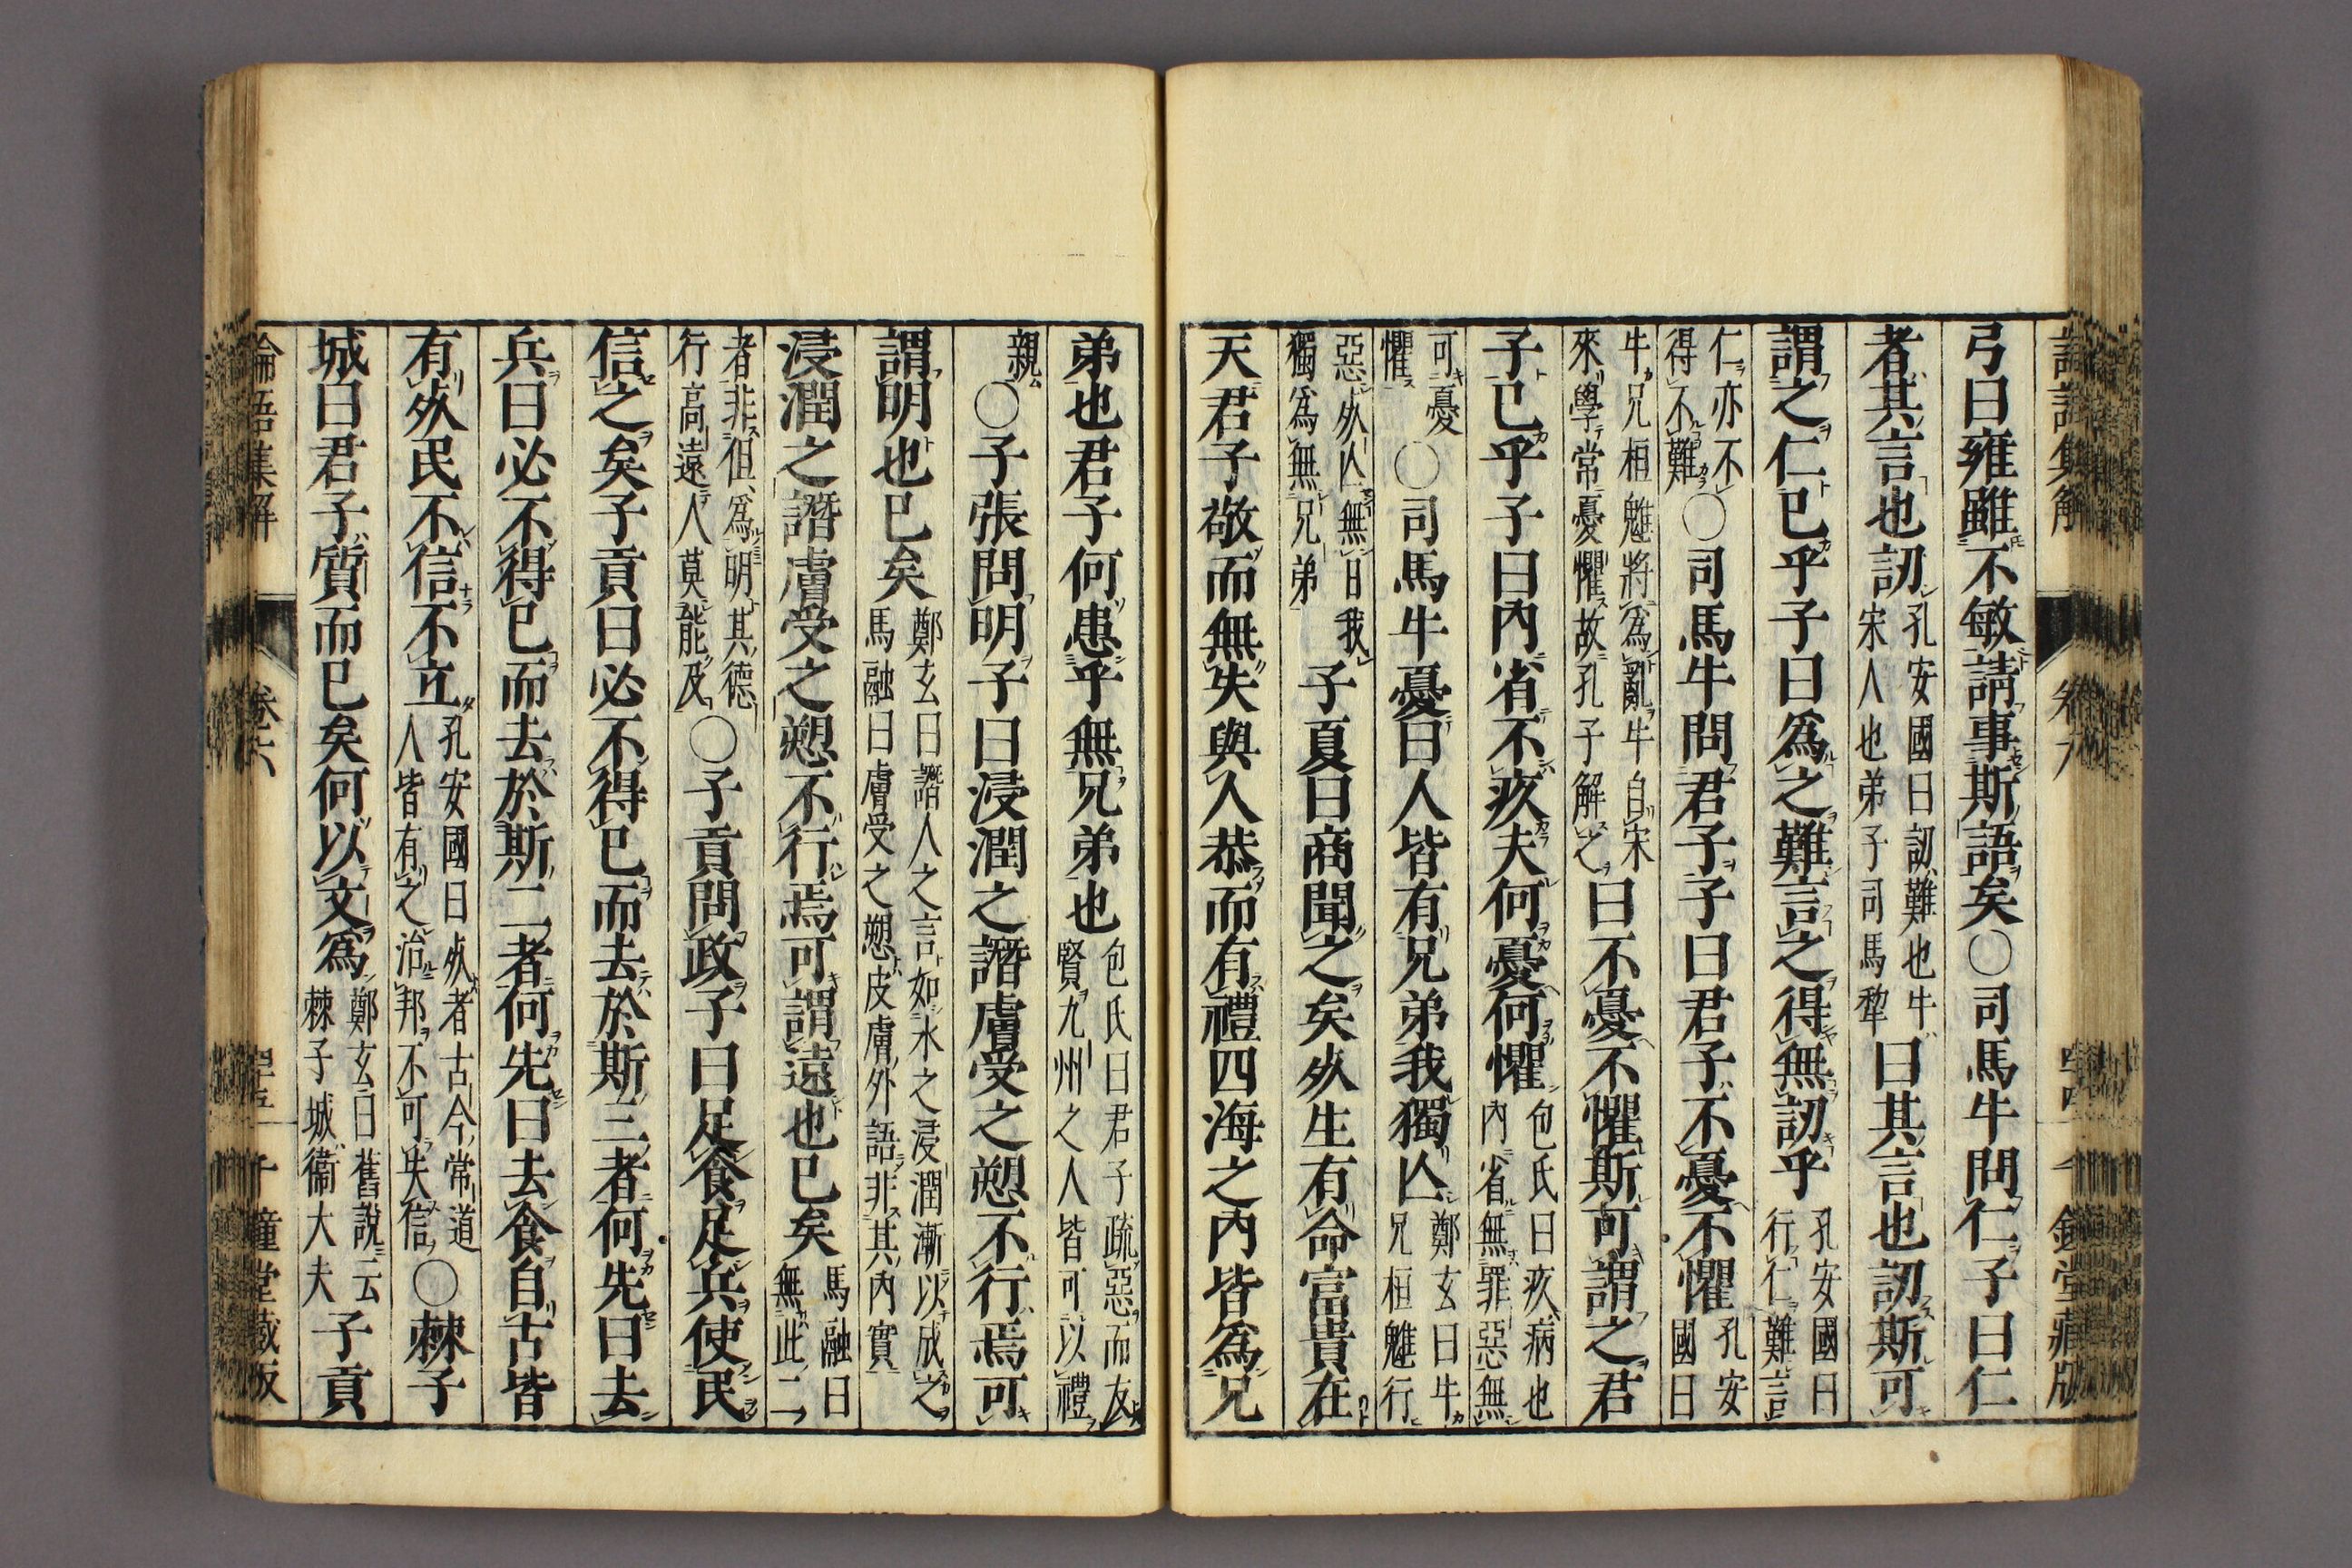 弓曰雍雖不敏請事斯語矣○司馬牛問仁子曰仁
者其言也訒孔安國曰訒難也牛宋人也弟子司馬犂曰其言也訒斯可
謂之仁已乎子曰爲之難言之得無訒乎孔安國曰行仁難言
仁亦不得不難○司馬牛問君子子曰君子不憂不懼孔安國曰
牛兄桓魋將爲亂牛自宋來學常憂懼故孔子解之曰不憂不懼斯可謂之君
子已乎子曰內省不疚夫何憂何懼包氏曰疚病也內省無罪惡無
可憂懼○司馬牛憂曰人皆有兄弟我獨亾鄭玄曰牛兄桓魋行
惡死亾無日我獨爲無兄弟子夏曰商聞之矣死生有命富貴在
天君子敬而無失與人恭而有禮四海之內皆爲兄
弟也君子何患乎無兄弟也包氏曰君子疏惡而友賢九州之人皆可以禮
親○子張問明子曰浸潤之譖膚受之愬不行焉可
謂明也已矣鄭玄曰譖人之言如水之浸潤漸以成之馬融曰膚受之愬皮膚外語非其內實
浸潤之譖膚受之愬不行焉可謂遠也已矣馬融曰無此二
者非但爲明其德行高遠人莫能及○子貢問政子曰足食足兵使民
信之矣子貢曰必不得已而去於斯三者何先曰去
兵曰必不得已而去於斯二者何先曰去食自古皆
有死民不信不立孔安國曰死者古今常道人皆有之治邦不可失信○棘子
城曰君子質而已矣何以文爲鄭玄曰舊說云棘子城衞大夫子貢
論語集解 卷六 千鍾堂藏版